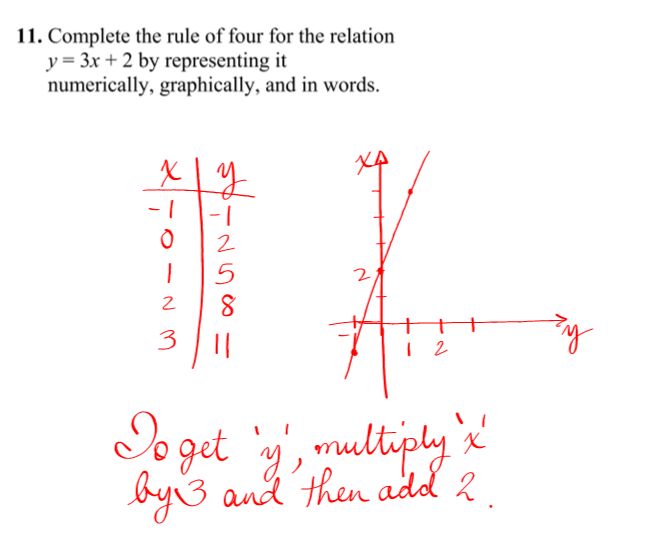 11. Complete the rule of four for the relation
y = 3x + 2 by representing it
numerically, graphically, and in words.
x y
-1 -1
0 2
1 5
2 8
3 11
x
2
-1 1 2
y
To get 'y', multiply 'x'
by 3 and then add 2.